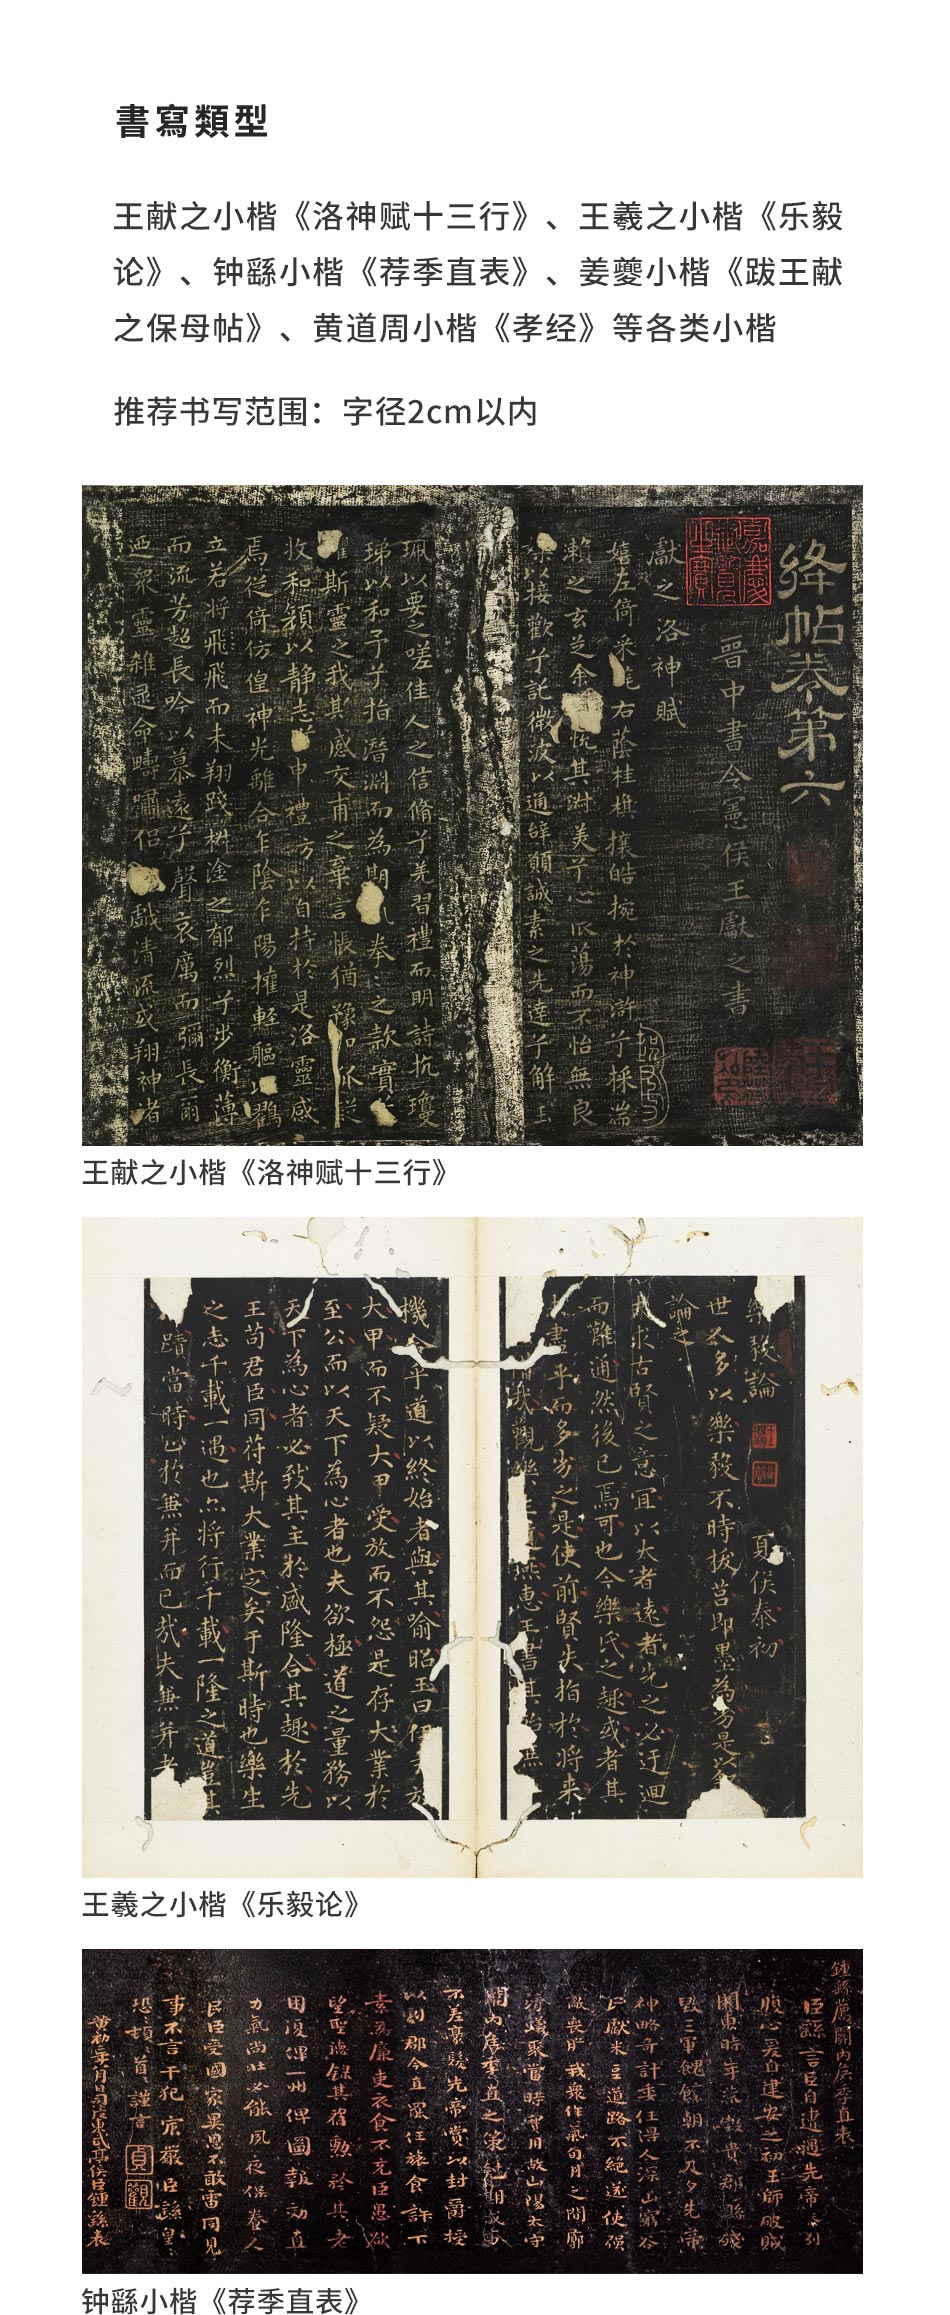 書寫類型
王献之小楷《洛神赋十三行》、王羲之小楷《乐毅
论》、钟繇小楷《荐季直表》、姜夔小楷《跋王献
之保母帖》、黄道周小楷《孝经》等各类小楷
推荐书写范围：字径2cm以内
絳帖卷第六
晉中書令憲侯王獻之書
獻之洛神賦
嬉左倚采旄右蔭桂旗攘皓捥於神滸兮採湍
瀨之玄芝余 悦其淑美兮心振蕩而不怡無良
以接歡兮託微波以通辭願誠素之先達兮解玉
珮以要之嗟佳人之信脩兮羌習禮而明詩抗瓊
珶以和予兮指潛淵而為期 拳〻之款實
斯靈之我其感交甫之棄言悵猶豫 狐疑
收和顔以静志 申禮方以自持於是洛靈感
焉徙倚仿偟神光離合乍陰乍陽擢輕軀 鶴
立若将飛飛而未翔踐椒塗之郁烈兮步衡薄
而流芳超長吟以慕遠兮聲哀厲而彌長爾
迺衆靈雜遝命疇嘯侣 戲清流或翔神渚
王献之小楷《洛神赋十三行》
樂毅論 夏侯泰初
世人多以樂毅不時拔莒即墨為劣是以
論之
求古賢之意宜以大者遠者先之必迂迴
而難通然後已焉可也今樂氏之趣或者其
盡乎而多劣之是使前賢失指於将来
觀樂 燕惠王書其殆
機合乎道以終始者與其喻昭王曰伊
大甲而不疑大甲受放而不怨是存大業於
至公而以天下為心者也夫欲極道之量務以
天下為心者必致其主於盛隆合其趣於先
王苟君臣同苻斯大業定矣于斯時也樂生
之志千載一遇也亦将行千載一隆之道豈其
蹟當時止於兼并而已哉夫兼并者
王羲之小楷《乐毅论》
鍾繇薦關内侯季直表
臣繇言臣自遭遇先帝〻列
腹心爰自建安之初王師破賊
關東時年荒穀貴郡縣殘
毁三軍餽饟朝不及夕先帝
神略奇計委任得人深山窮谷
民獻米豆道路不絶遂使强
敵喪膽我衆作氣旬月之間廓
清蟻聚當時實用故山陽太守
關内侯季直之策 期成事
不差豪髮先帝賞以封爵授
以劇郡今直罷任旅食許下
素為廉吏衣食不充臣愚欲
望聖德録其舊勳矜其老
困復俾一州俾圖報効直
力氣尚壯必能夙夜保養人
民臣受國家異恩不敢雷同見
事不言干犯宸嚴臣繇皇〻
恐〻頓〻首〻謹言
黄初二年八月日司徒東武亭侯臣鍾繇表
钟繇小楷《荐季直表》